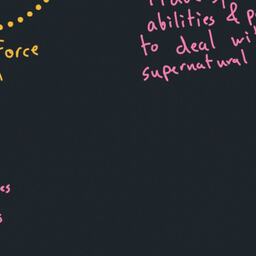 force
abilities & p
to deal wi
supernatural
es
s